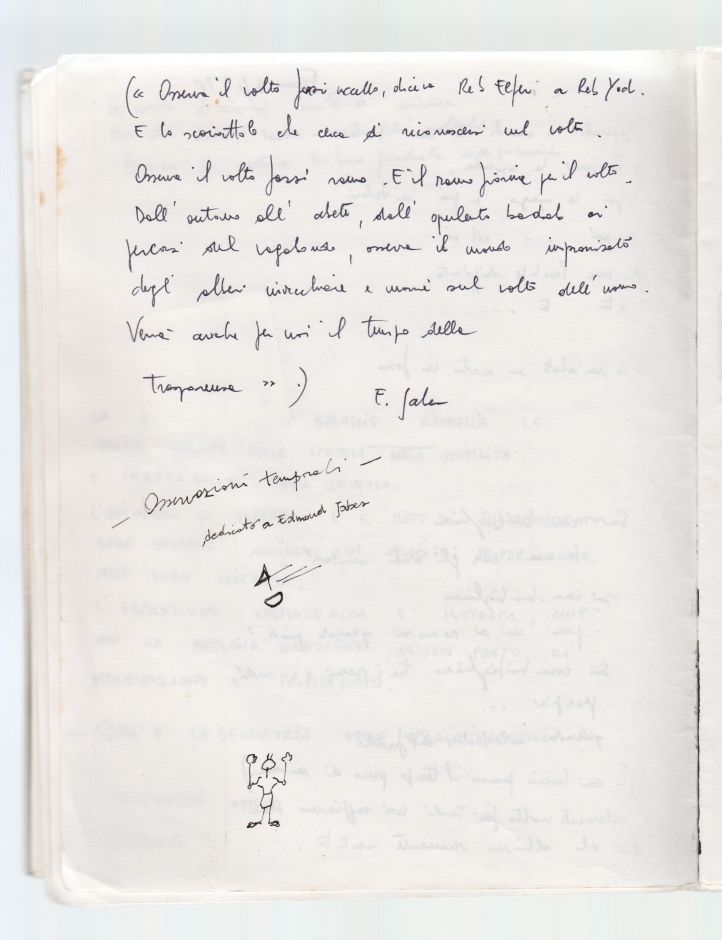 (« Osserva il volto farsi uccello, diceva Reb Elferi a Reb Yod.
E lo scoiattolo che cerca di riconoscersi nel volto.
Osserva il volto farsi ramo. E il ramo fiorire per il volto.
Dall' autunno all' abete, dall' opulento baobab ai
percorsi del vagabondo, osserva il mondo improvvisato
degli alberi invecchiare e morire sul volto dell' uomo.
Verrà anche per noi il tempo della
trasparenza » .)
E. Jabes
— Osservazioni temporali —
dedicato a Edmond Jabes